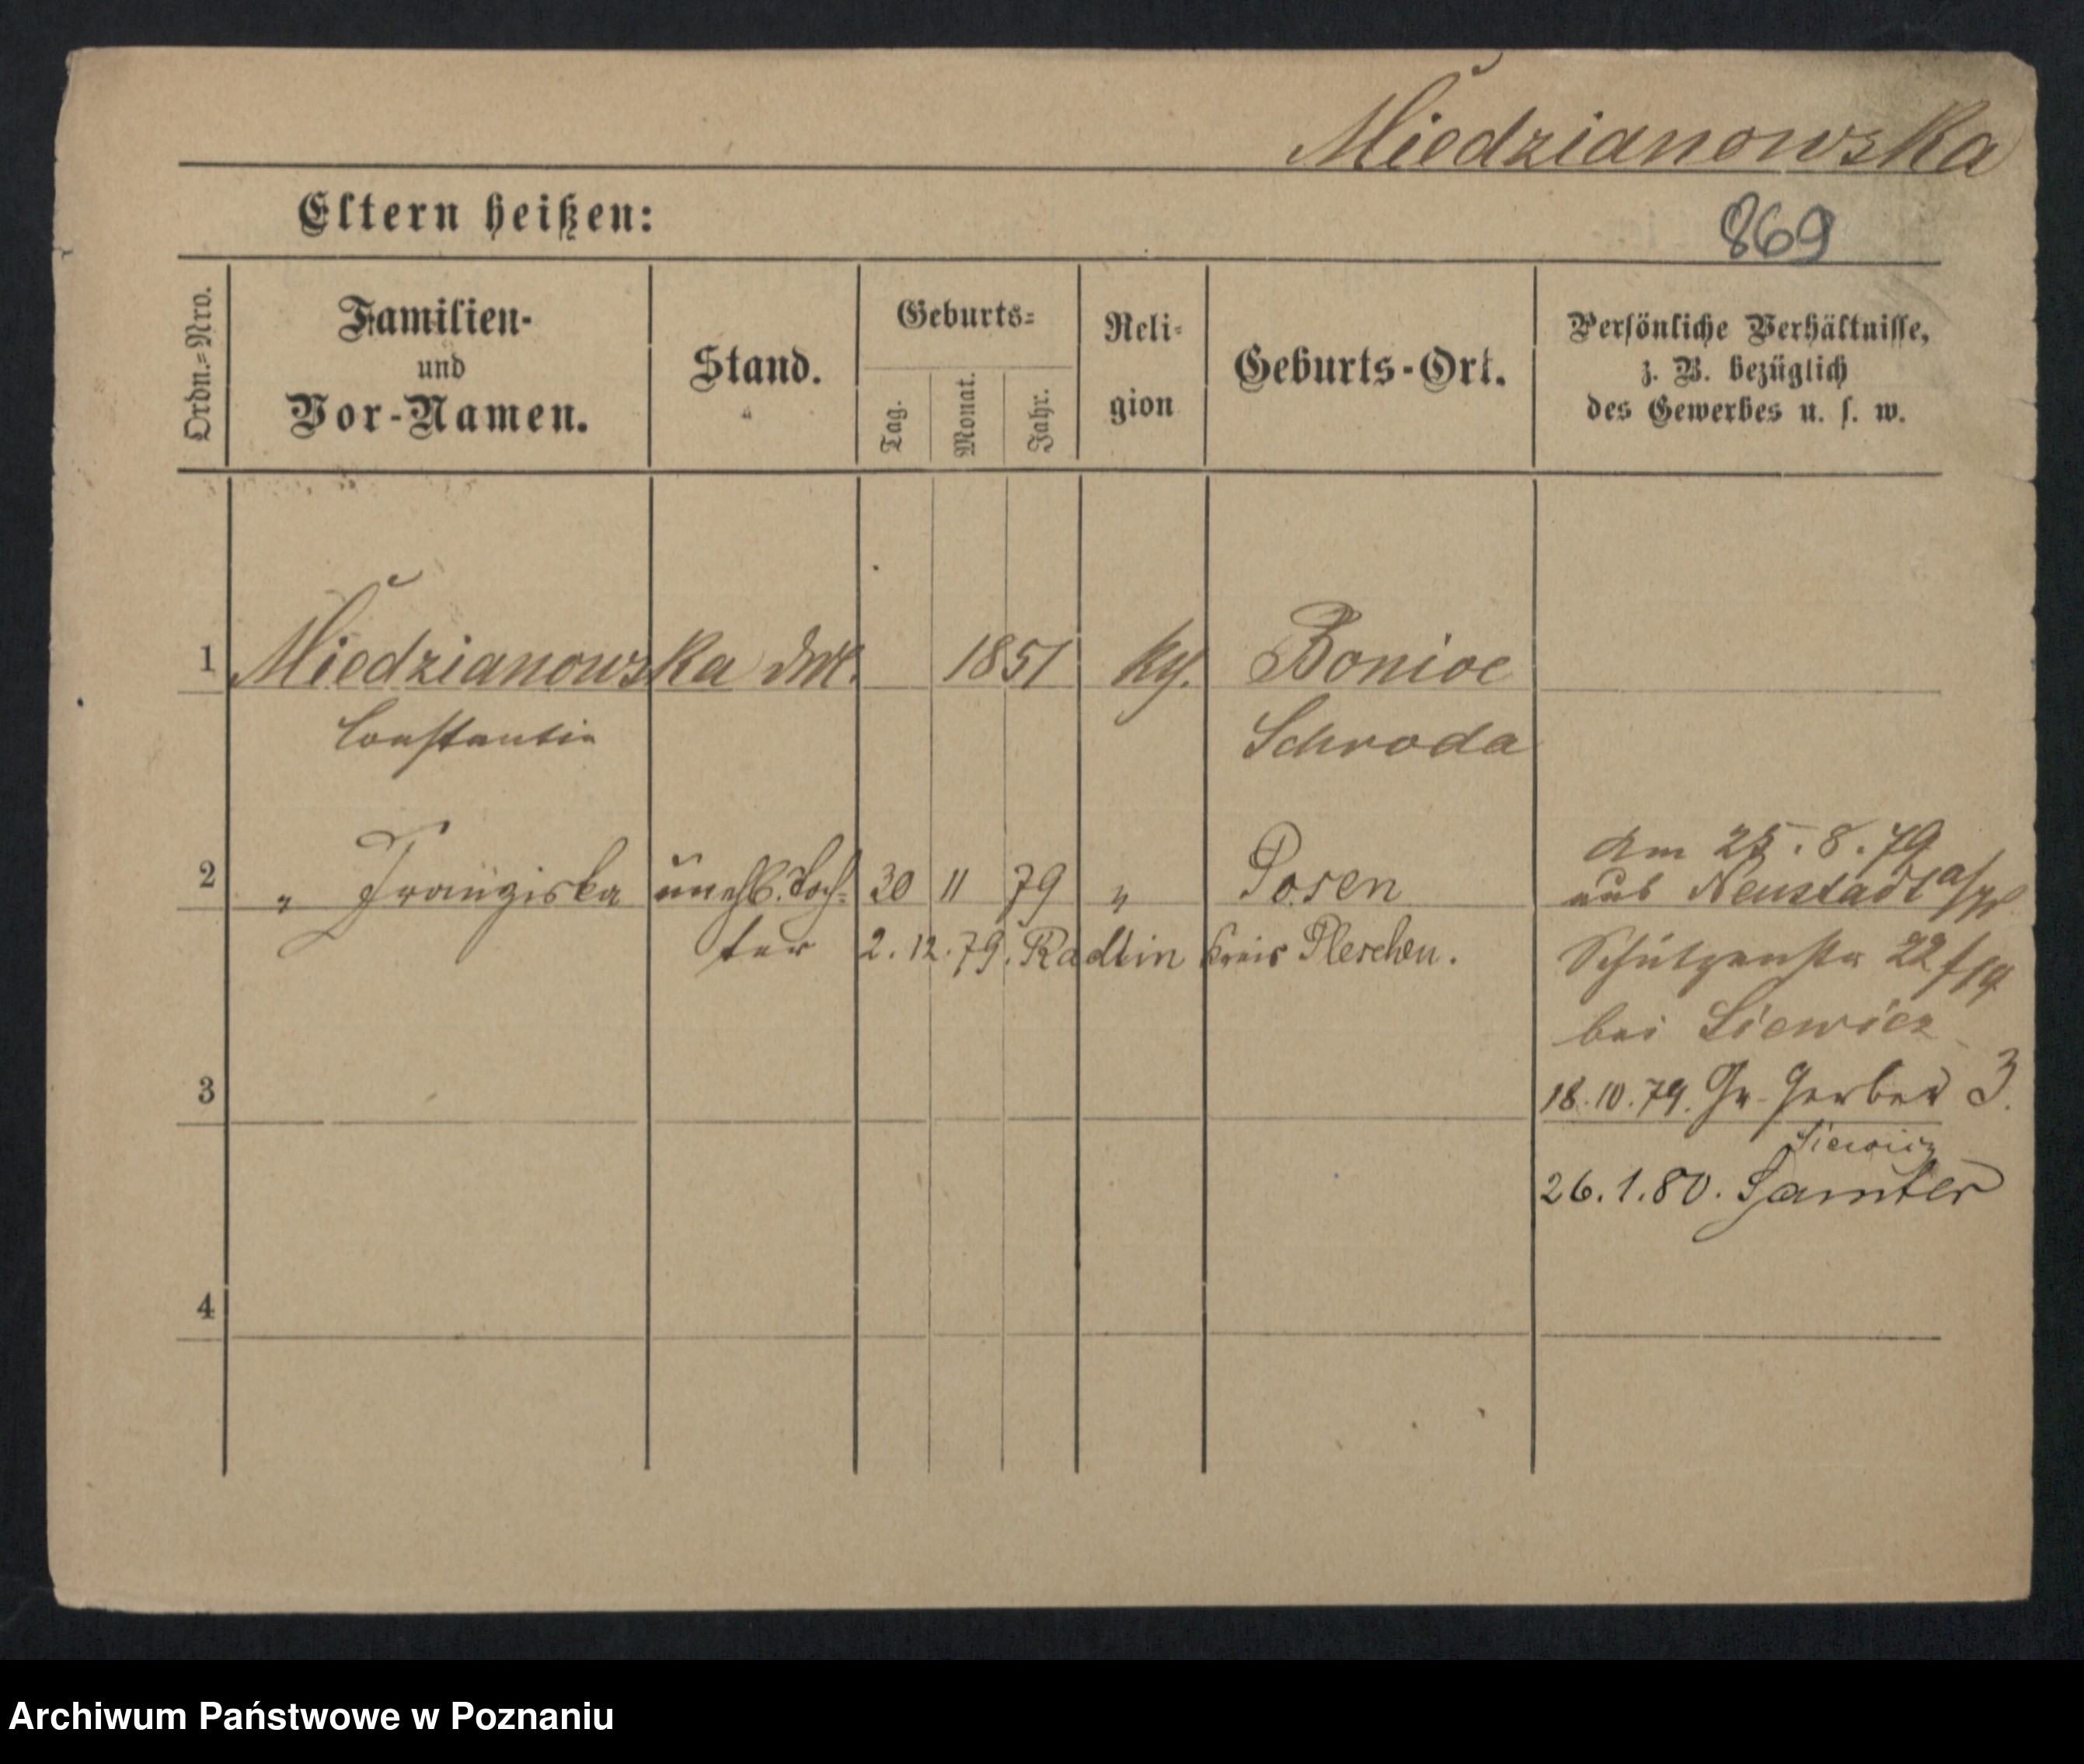 Miedzianowska
Eltern heißen:
869
Ordn.=Nro.
Familien-
und
Vor-Namen.
Stand.
Geburts=
Tag.
Monat.
Jahr.
Reli=
gion
Geburts-Ort.
Persönliche Verhältnisse,
z. B. bezüglich
des Gewerbes u. s. w.
1 Miedzianowska 1851
Constantia Schroda
2 " Franziska unehl. Toch= 30 11 79 " Posen
ter 2. 12. 79. Radlin Kreis Pleschen.
Am 25. 8. 79
aus Neustadt
Schützenstr
bei Siewicz
3
18. 10. 79. Gr. Gerber 3.
Siewicz
26. 1. 80. Samter
4
Archiwum Państwowe w Poznaniu